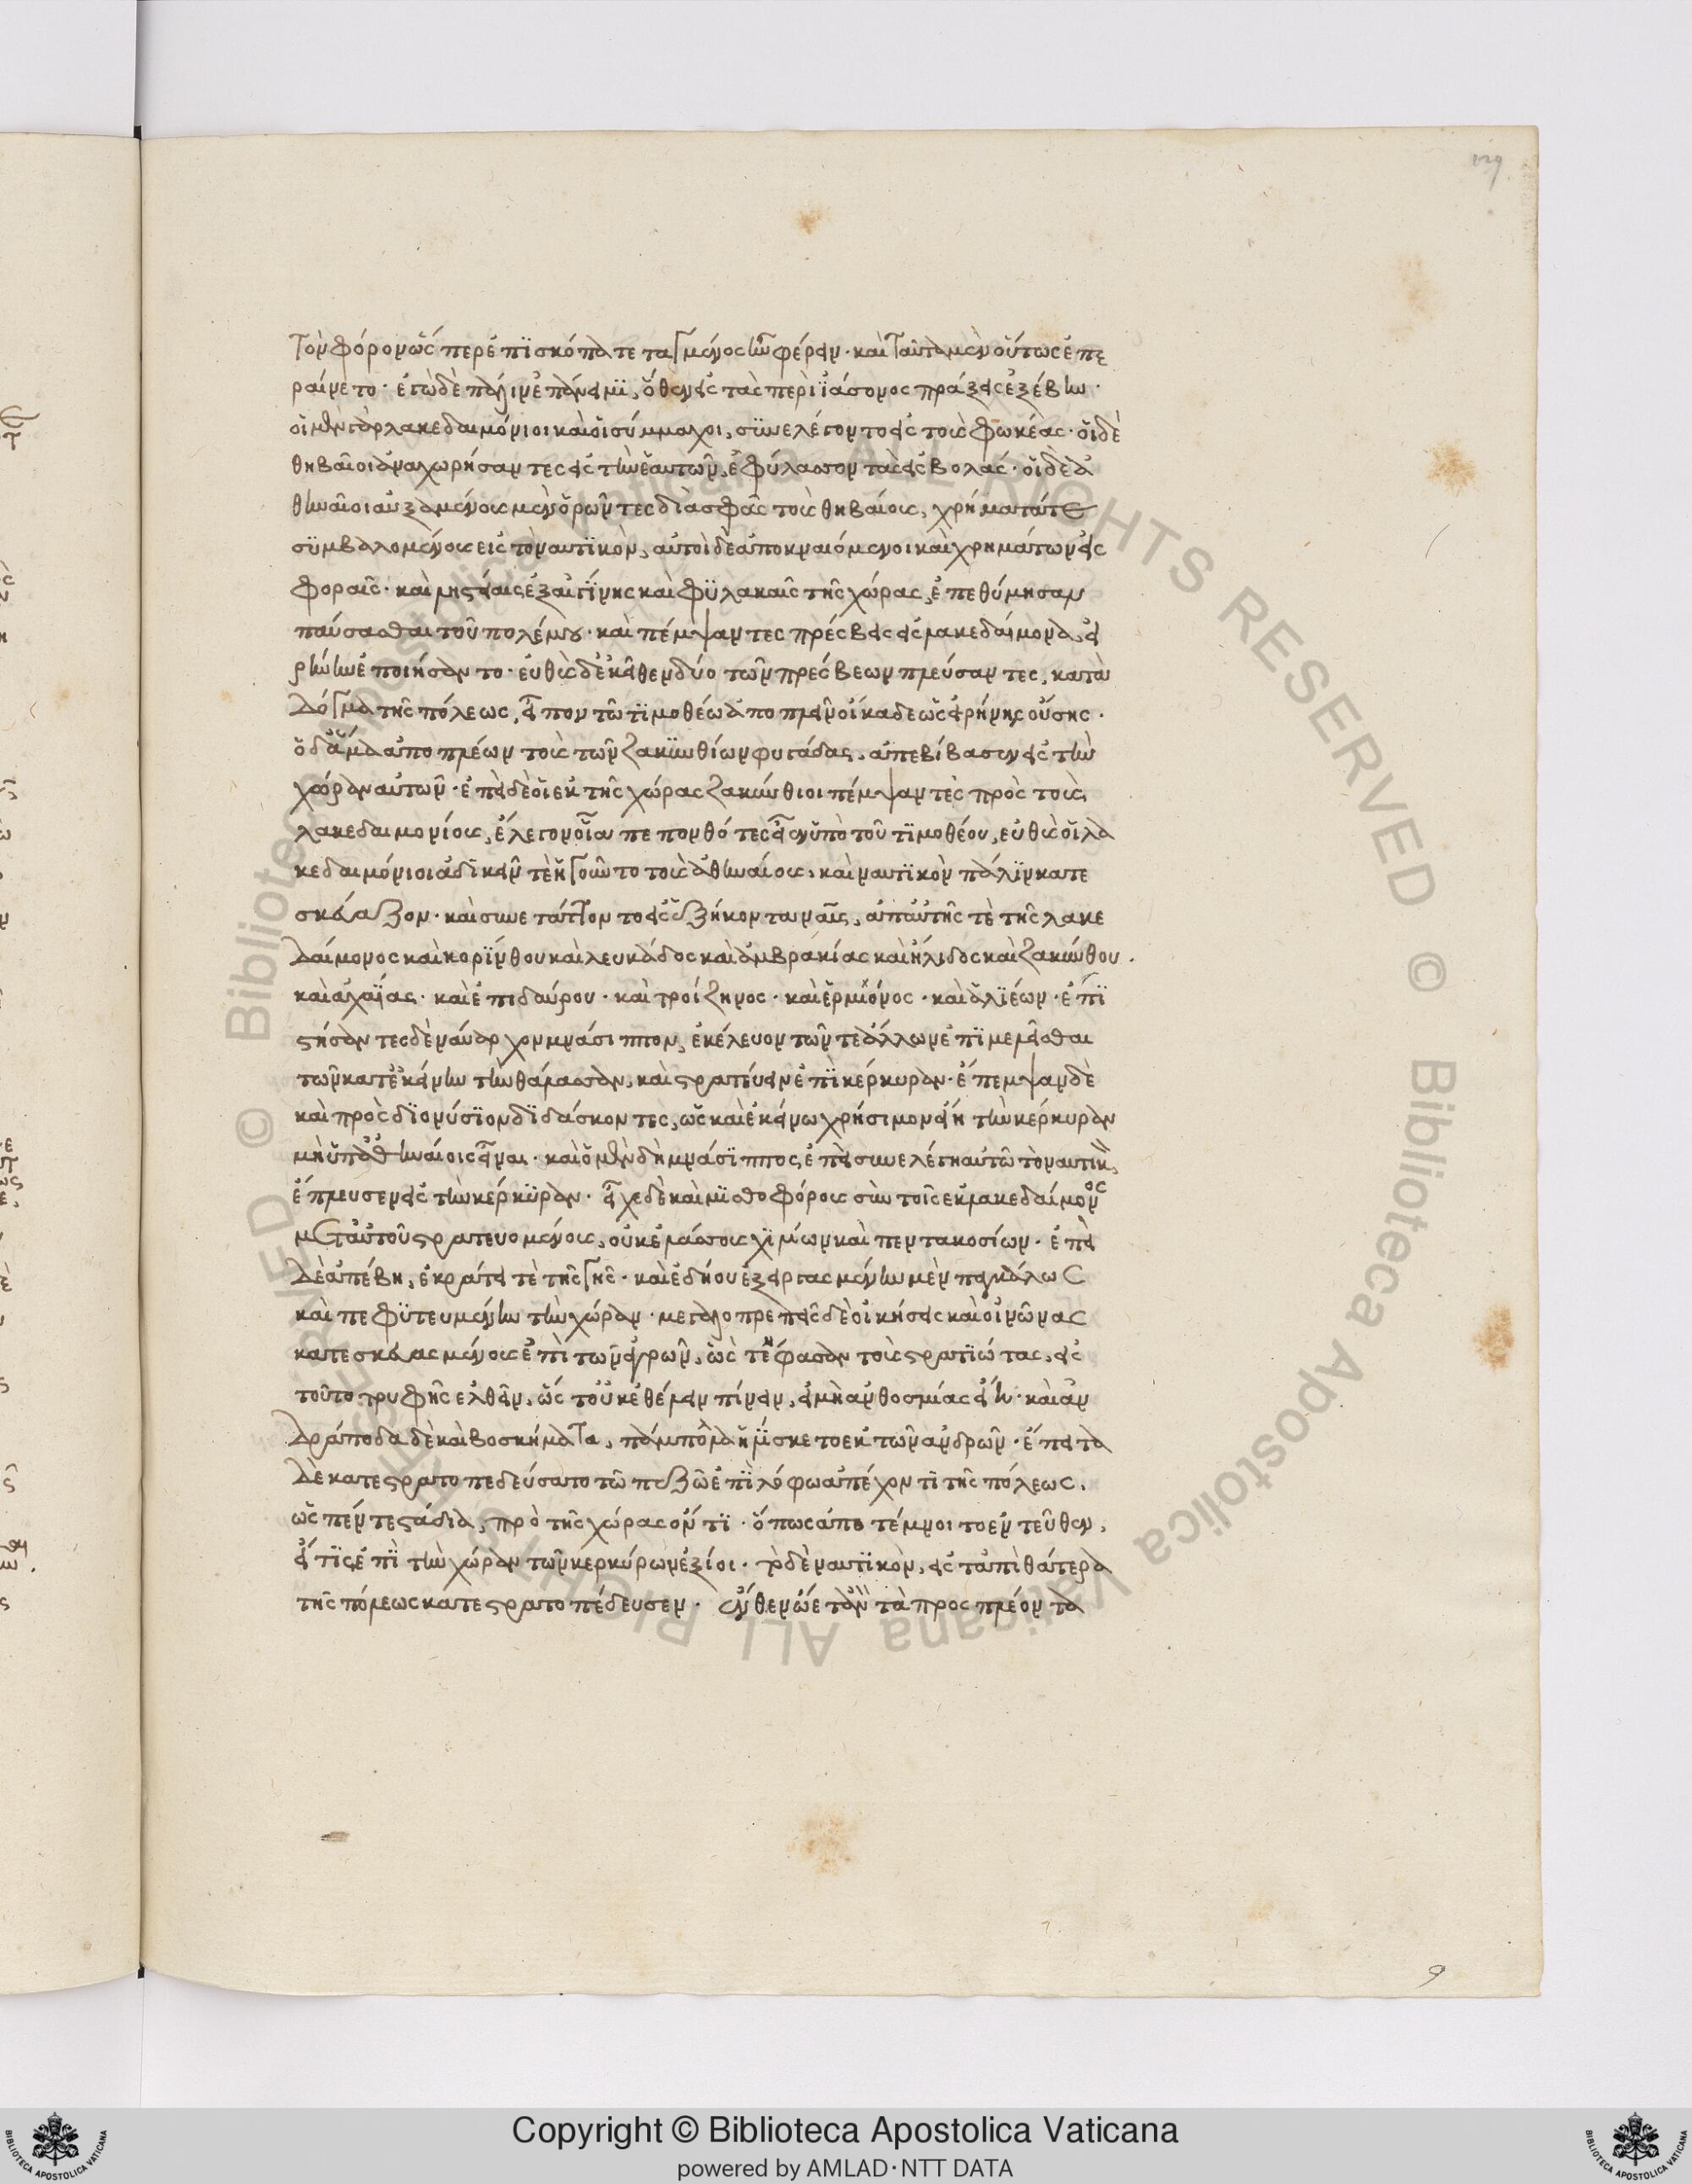 129
τὸν φόρον ὥσπερ ἐπῒ σκόπα τεταγμένος ἦν φέρειν· καὶ ταῦτα μὲν οὕτως ἐπε
ραίνετο· ἐγὼ δὲ πάλιν ἐπάνειμϊ, ὅθεν εἰς τὰς περὶ ϊάσονος πράξεις ἐξέβην·
οἱ μὲν γὰρ λακεδαιμόνιοι καὶ οἱ σύμμαχοι, συνελέγοντο εἰς τοὺς φωκέας· οἱ δὲ
θηβαῖοι ἀναχωρήσαντες εἰς τὴν ἑαυτῶν, ἐφύλαττον τὰς εἰσβολάς· οἱ δὲ ἀ
θηναῖοι αὐξαμένους μὲν ὁρῶντες διὰ σφᾶς τοὺς θηβαίους, χρήματά τε
συμβαλομένους εἰς τὸ ναυτϊκὸν, αὐτοὶ δὲ ἀποκναιόμενοι καὶ χρημάτων εἰσ
φοραῖς· καὶ ληστείαις ἐξ αἰγίνης καὶ φϋλακαῖς τῆς χώρας, ἐπεθύμησαν
παύσασθαι τοῦ πολέμου· καὶ πέμψαντες πρέσβεις εἰς λακεδαίμονα, εἰ
ρήνην ἐποιήσαντο· εὐθὺς δ' ἐκεῖθεν δύο τῶν πρέσβεων πλεύσαντες, κατὰ
δόγμα τῆς πόλεως, εἶπον τῶ τϊμοθέω ἀποπλεῖν οἴκαδε ὡς εἰρήνης οὔσης·
ὁ δ' ἅμα ἀποπλέων τοὺς τῶν ζακϋνθίων φυγάδας, ἀπεβίβασεν εἰς τὴν
χώραν αὐτῶν· ἐπεὶ δὲ οἱ ἐκ τῆς χώρας ζακύνθιοι πέμψαντὲς πρὸς τοὺς
λακεδαιμονίους, ἔλεγον οἷα πεπονθότες εἶεν ὑπὸ τοῦ τϊμοθέου, εὐθὺς οἱ λα
κεδαιμόνιοι ἀδϊκεῖν τὲ ἡγοῦντο τοὺς ἀθηναίους, καὶ ναυτϊκὸν πάλϊν κατε
σκεύαζον· καὶ συνετάττοντο εἰς ἑξήκοντα ναῦς, ἀπ' αὐτῆς τὲ τῆς λακε
δαίμονος καὶ κορϊνθου καὶ λευκάδος καὶ ἀμβρακίας καὶ ἤλιδος καὶ ζακύνθου·
καὶ ἀχαΐας· καὶ ἐπιδαύρου· καὶ τροίζηνος· καὶ ἑρμιόνος· καὶ ἁλϊέων· ἐπϊ
στήσαντες δὲ ναύαρχον μνάσιππον, ἐκέλευον τῶν τε ἄλλων ἐπϊμελεῖσθαι
τῶν κατ' ἐκείνην τὴν θάλατταν, καὶ στρατεύειν ἐπῒ κέρκυραν· ἔπεμψαν δὲ
καὶ πρὸς δϊονύσϊον δϊδάσκοντες, ὡς καὶ ἐκείνω χρήσιμον εἴη τὴν κέρκυραν
μὴ ὑπ' ἀθηναίοις εἶναι· καὶ ὁ μὲν δὴ μνάσϊππος, ἐπεὶ συνελέγη αὐτῶ τὸ ναυτικὸν,
ἔπλευσεν εἰς τὴν κέρκϋραν· εἶχε δὲ καὶ μϊσθοφόρους σὺν τοῖς ἐκ λακεδαίμονος
μετ' αὐτοῦ στρατευομένοις, οὐκ ἐλάττους χϊλίων καὶ πεντακοσίων· ἐπεὶ
δὲ ἀπέβη, ἐκράτει τὲ τῆς γῆς· καὶ ἐδήου ἐξειργασμένην μὲν παγκάλως
καὶ πεφϋτευμένην τὴν χώραν· μεγαλοπρεπεῖς δὲ οἰκήσεις καὶ οἰνῶνας
κατεσκευασμένους ἐπὶ τῶν ἀγρῶν, ὡς τ' ἔφασαν τοὺς στρατϊώτας, εἰς
τοῦτο τρυφῆς ἐλθεῖν, ὥς τ' οὐκ ἐθέλειν πίνειν, εἰ μὴ ἀνθοσμίας εἴη· καὶ ἀν
δράποδα δὲ καὶ βοσκήματα, πάμπολλα ἡλίσκετο ἐκ τῶν ἀνδρῶν· ἔπειτα
δὲ κατεστρατοπεδεύσατο τῶ πεζῶ ἐπῒ λόφω ἀπέχοντϊ τῆς πόλεως,
ὡς πέντε στάδια, πρὸ τῆς χώρας ὄντϊ· ὅπως ἀποτέμνοιτο ἐντεῦθεν,
εἴ τϊς ἐπῒ τὴν χώραν τῶν κερκύρων ἐξίοι· τὸ δὲ ναυτϊκὸν, εἰς τἀπὶ θάτερα
τῆς πόλεως κατεστρατοπέδευσεν· ἔνθεν ᾤετ' ἂν τὰ προσπλέοντα
9
Copyright © Biblioteca Apostolica Vaticana
powered by AMLAD·NTT DATA